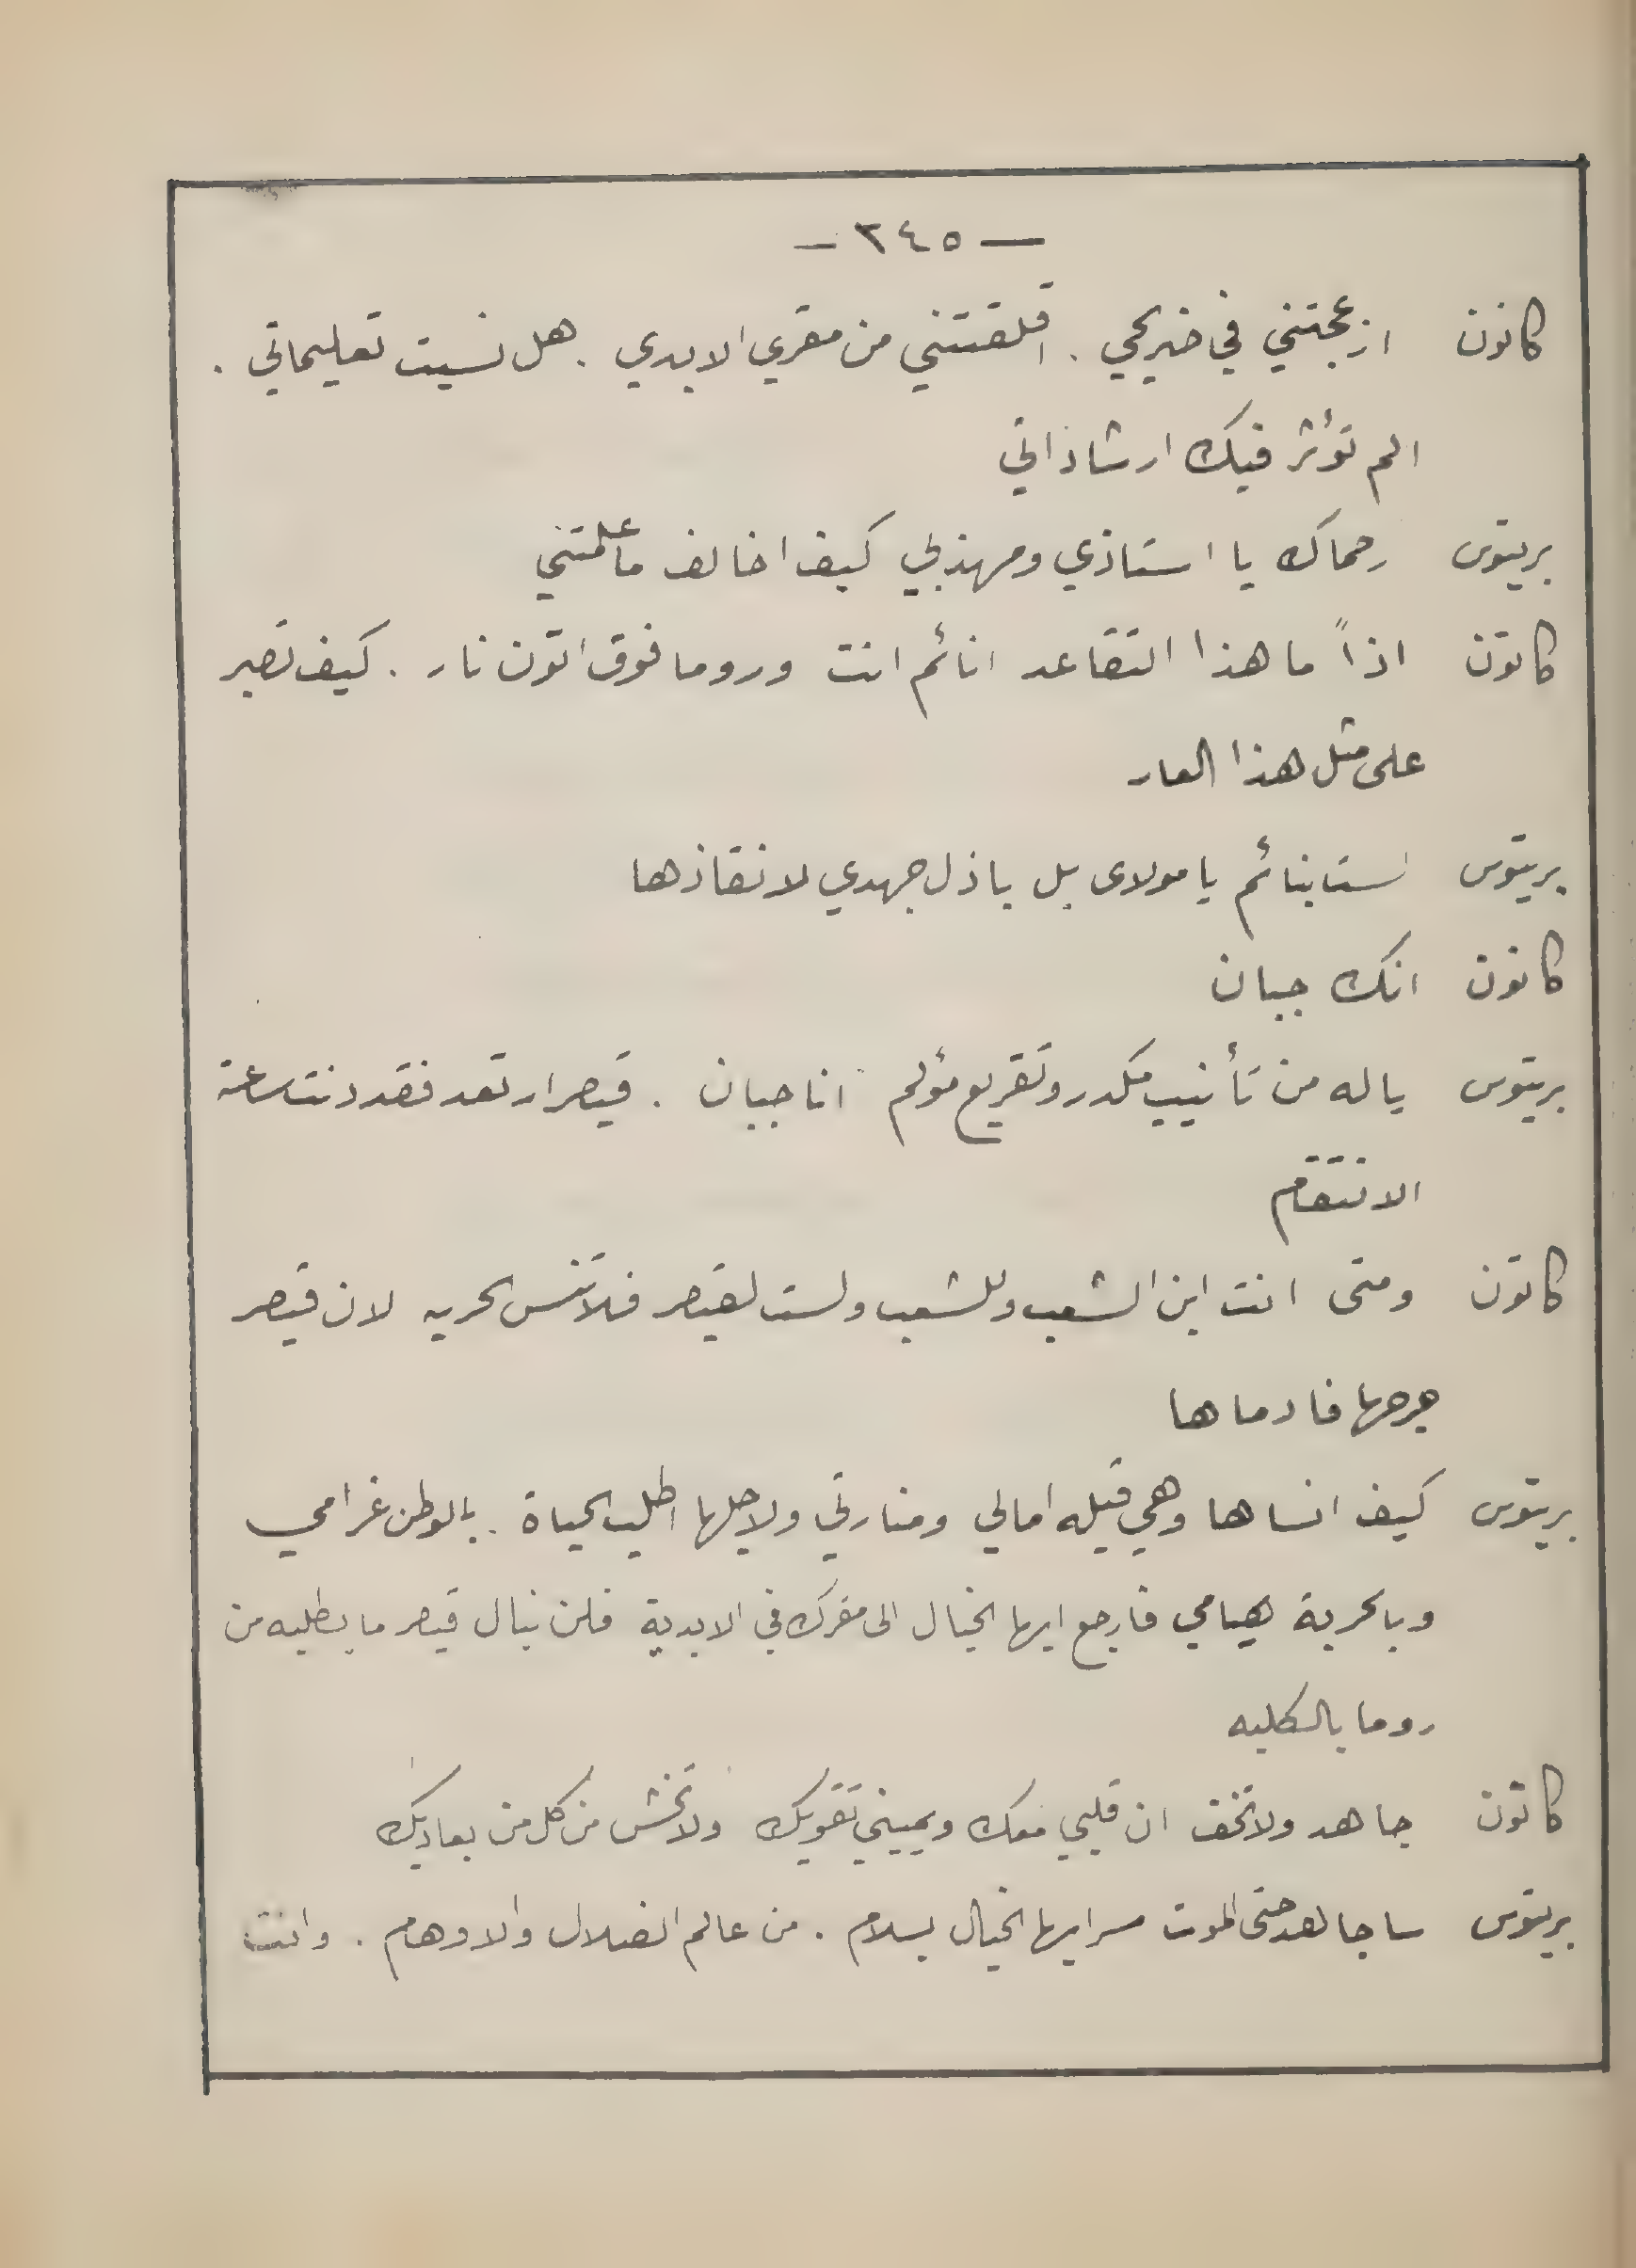 — ٣٤٥ —
كاتون ازعجتني في ضريحي . اقلقتني من مقري الابدي . هل نسيت تعليماتي .
الم تؤثر فيك ارشاداتي
بريتوس رحماك يا استاذي ومهذبي كيف اخالف ما علمتني
كاتون اذاً ما هذا التقاعد انائم انت وروما فوق اتون نار . كيف تصبر
على مثل هذا العار
بريتوس لست بنائم يا مولاى بل باذل جهدي لانقاذها
كاتون انك جبان
بريتوس ياله من تأنيب مكدر وتقريع مؤلم انا جبان . قيصر ارتعد فقد دنت ساعة
الانتقام
كاتون ومتى انت ابن الشعب وللشعب ولست لقيصر فلا تنس الحريه لان قيصر
جرحها فادماها
بريتوس كيف انساها وهي قبله امالي ومنارتي ولاجلها اطلب الحياة . بالوطن غرامي
وبالحرية هيامي فارجع ايها الخيال الى مقرك في الابدية فلن ينال قيصر ما يطلبه من
روما بالكليه
كاتون جاهد ولا تخف ان قلبي معك ويميني تقويك ولا تخش من كل من يعاديك
بريتوس ساجاهد حتى الموت سر ايها الخيال بسلام . من عالم الضلال والاوهام . وانت